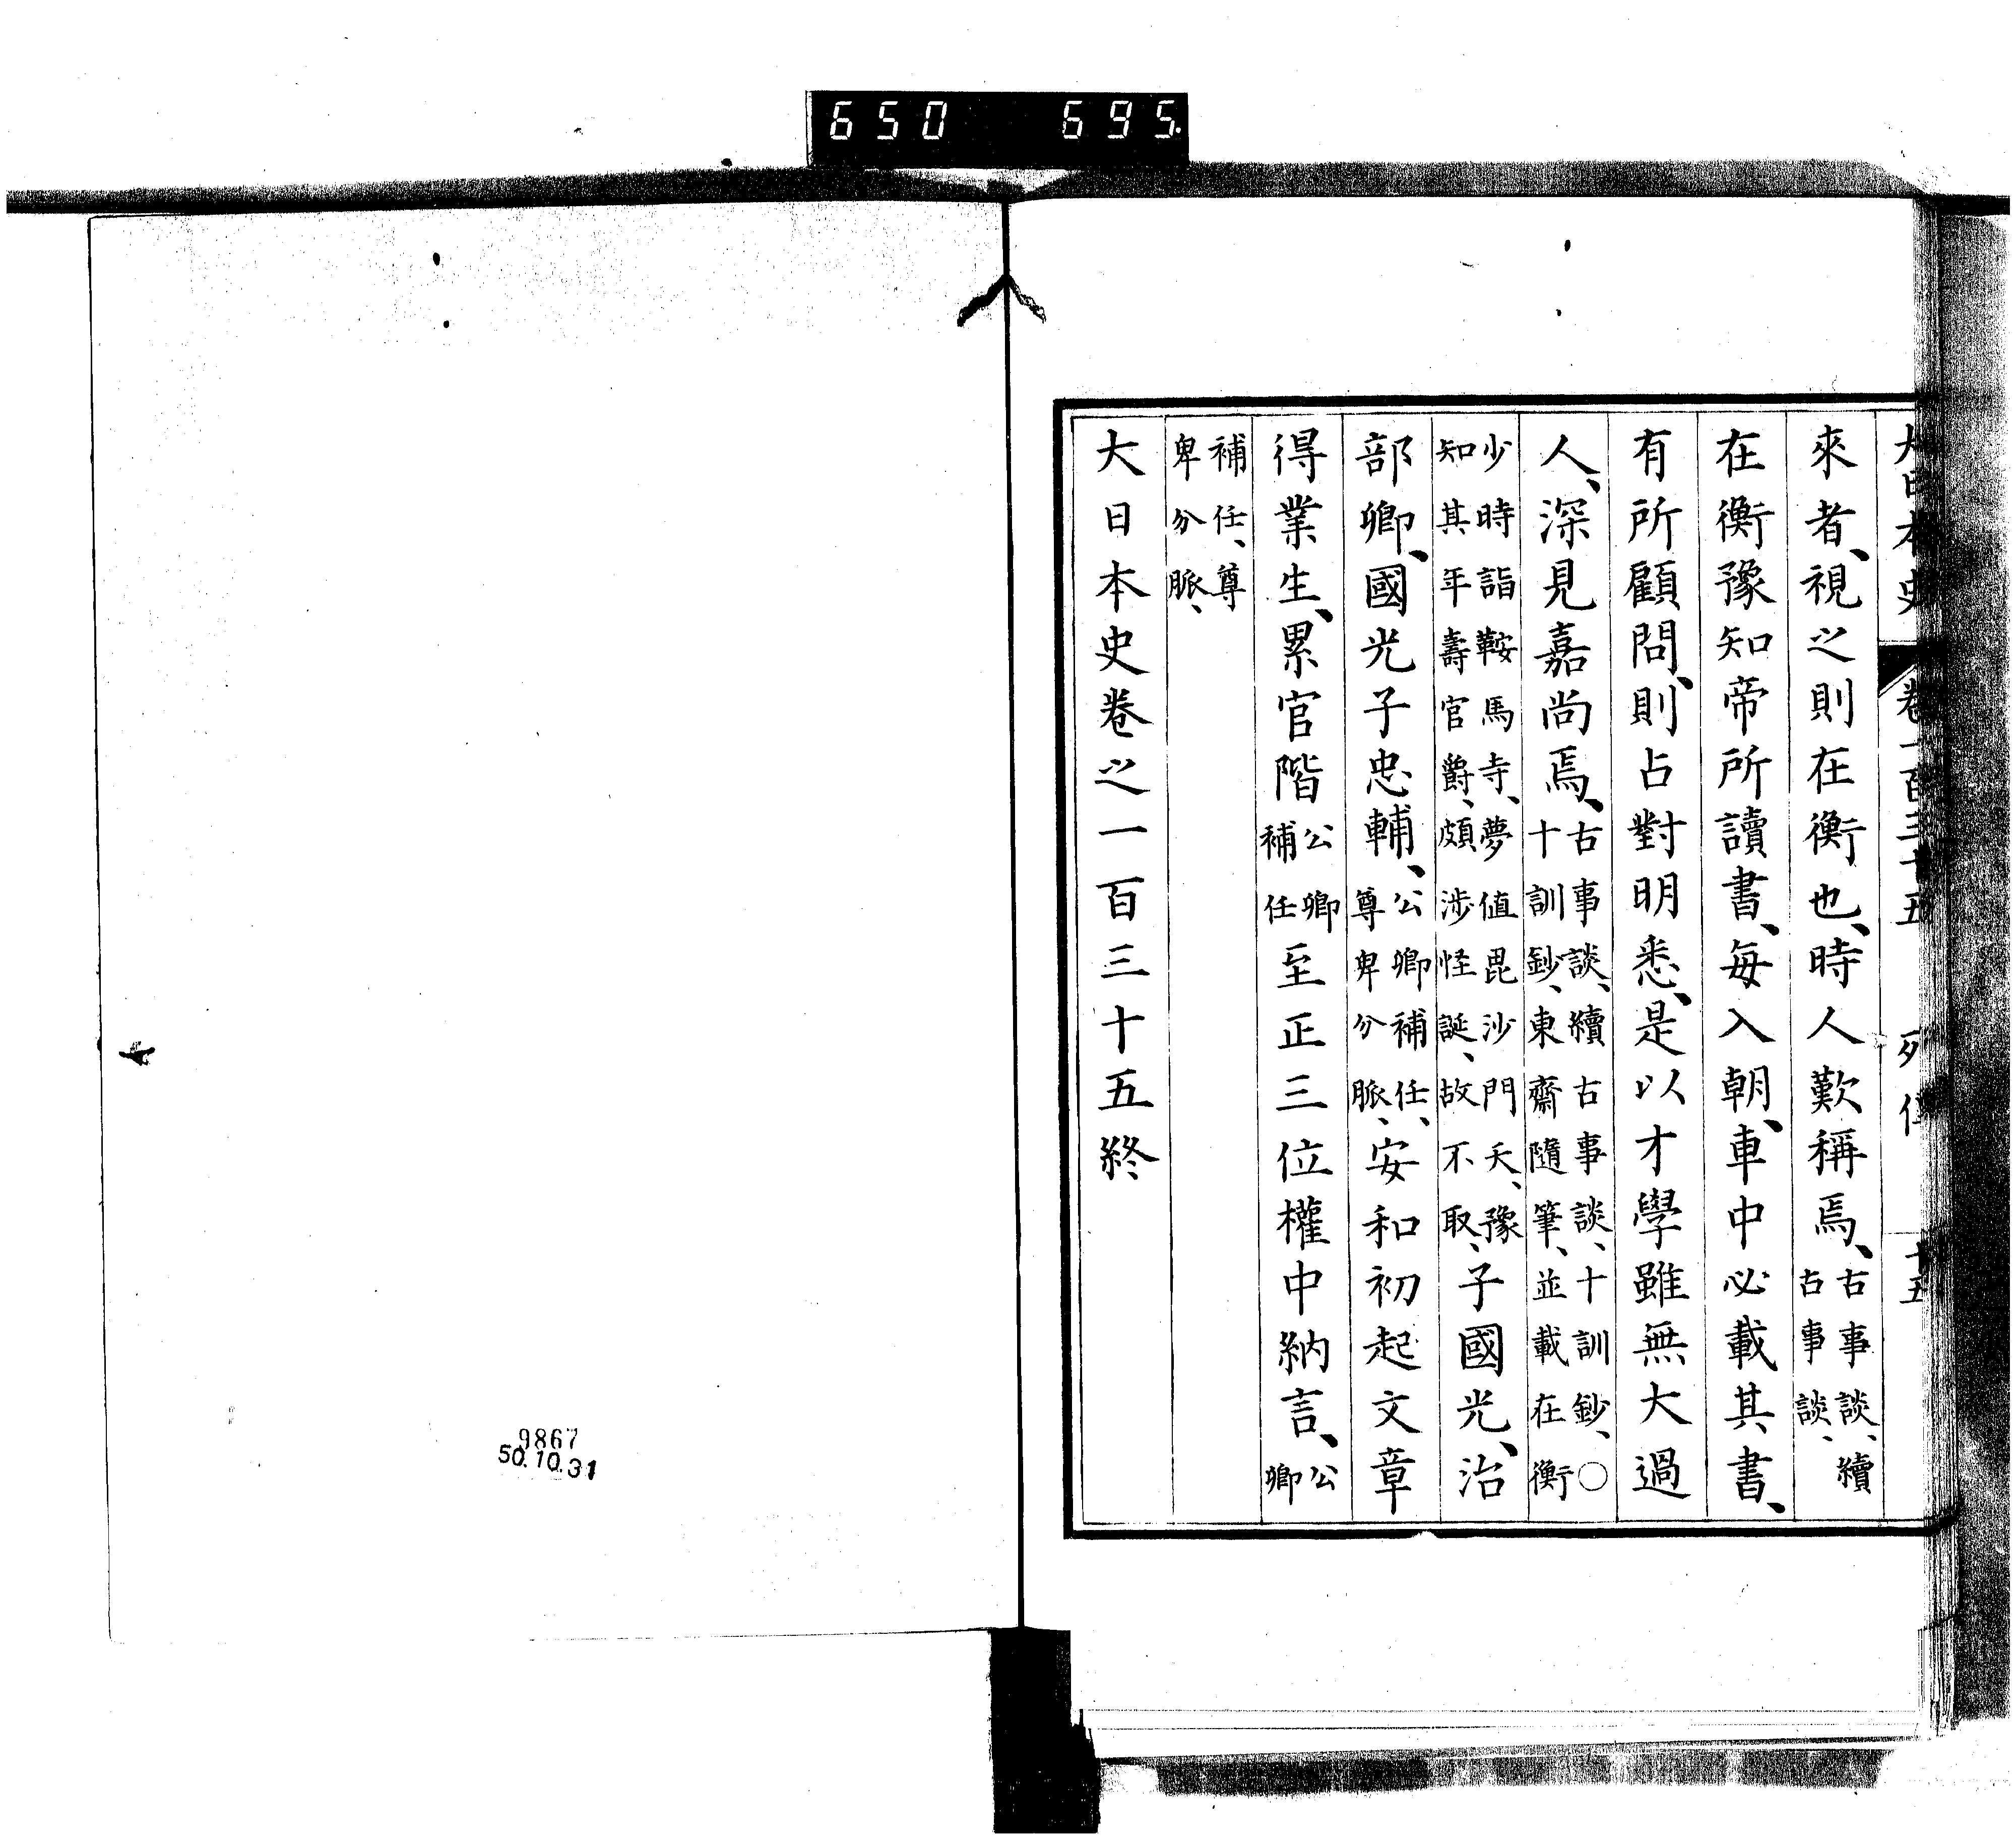 650 695.
大日本史 卷一百三十五 列傳 十五
來者、視之則在衡也、時人歎稱焉、古事談、續古事談、
在衡豫知帝所讀書、每入朝、車中必載其書、
有所顧問、則占對明悉、是以才學雖無大過
人、深見嘉尚焉、古事談、續古事談、十訓鈔、〇十訓鈔、東齋隨筆、並載在衡
少時詣鞍馬寺、夢値毘沙門天、豫知其年壽官爵、頗涉怪誕、故不取、子國光、治
部卿、國光子忠輔、公卿補任、尊卑分脈、安和初起文章
得業生、累官階公卿補任至正三位權中納言、公卿
補任、尊卑分脈、
大日本史卷之一百三十五終
9867
50.10.31